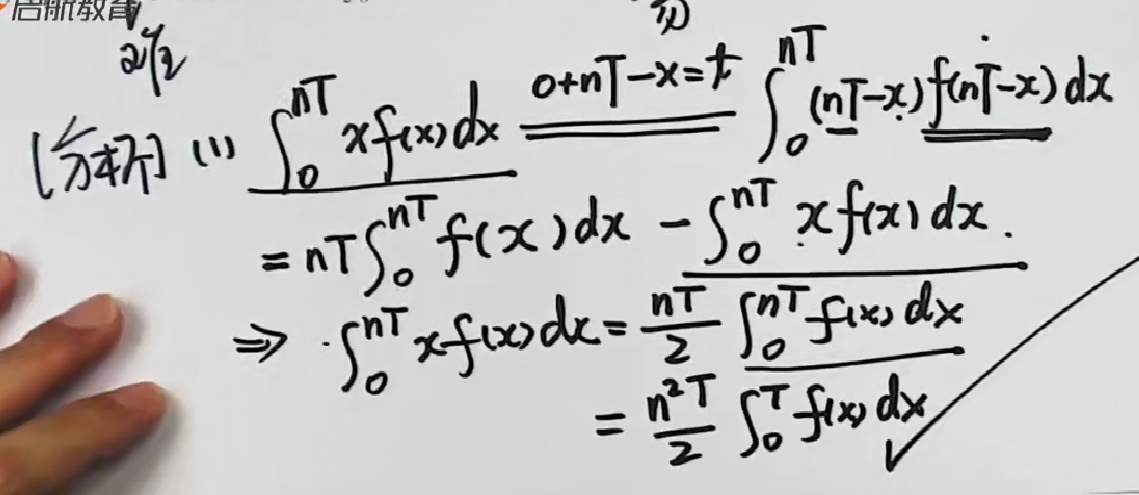 启航教育
[分析] (1) ∫₀ⁿᵀ x f(x) dx \overset{0+nT-x=t}{=} ∫₀ⁿᵀ (nT-x) f(nT-x) dx
= nT ∫₀ⁿᵀ f(x) dx - ∫₀ⁿᵀ x f(x) dx.
⇒ ∫₀ⁿᵀ x f(x) dx = \frac{nT}{2} ∫₀ⁿᵀ f(x) dx
= \frac{n²T}{2} ∫₀ᵀ f(x) dx